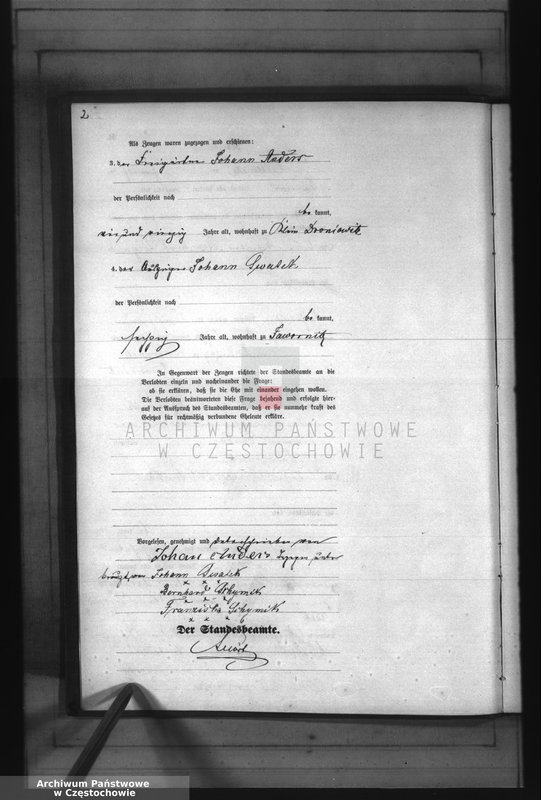 2
Als Zeugen waren zugezogen und erschienen:
3. der Johann Anders
der Persönlichkeit nach
be kannt,
vier und vierzig Jahre alt, wohnhaft zu Klein Droniowitz
4. der Auszügler Johann
der Persönlichkeit nach
be kannt,
sechzig Jahre alt, wohnhaft zu Jawornitz
In Gegenwart der Zeugen richtete der Standesbeamte an die
Verlobten einzeln und nacheinander die Frage:
ob sie erklären, daß sie die Ehe mit einander eingehen wollen.
Die Verlobten beantworteten diese Frage bejahend und erfolgte hier-
auf der Ausspruch des Standesbeamten, daß er sie nunmehr kraft des
Gesetzes für rechtmäßig verbundene Eheleute erkläre.
ARCHIWUM PAŃSTWOWE
W CZĘSTOCHOWIE
Vorgelesen, genehmigt und unterschrieben von
Johan Anders
Johann
x x x
Bernhard
x x x
Franziska
x x x
Der Standesbeamte.
Archiwum Państwowe
w Częstochowie